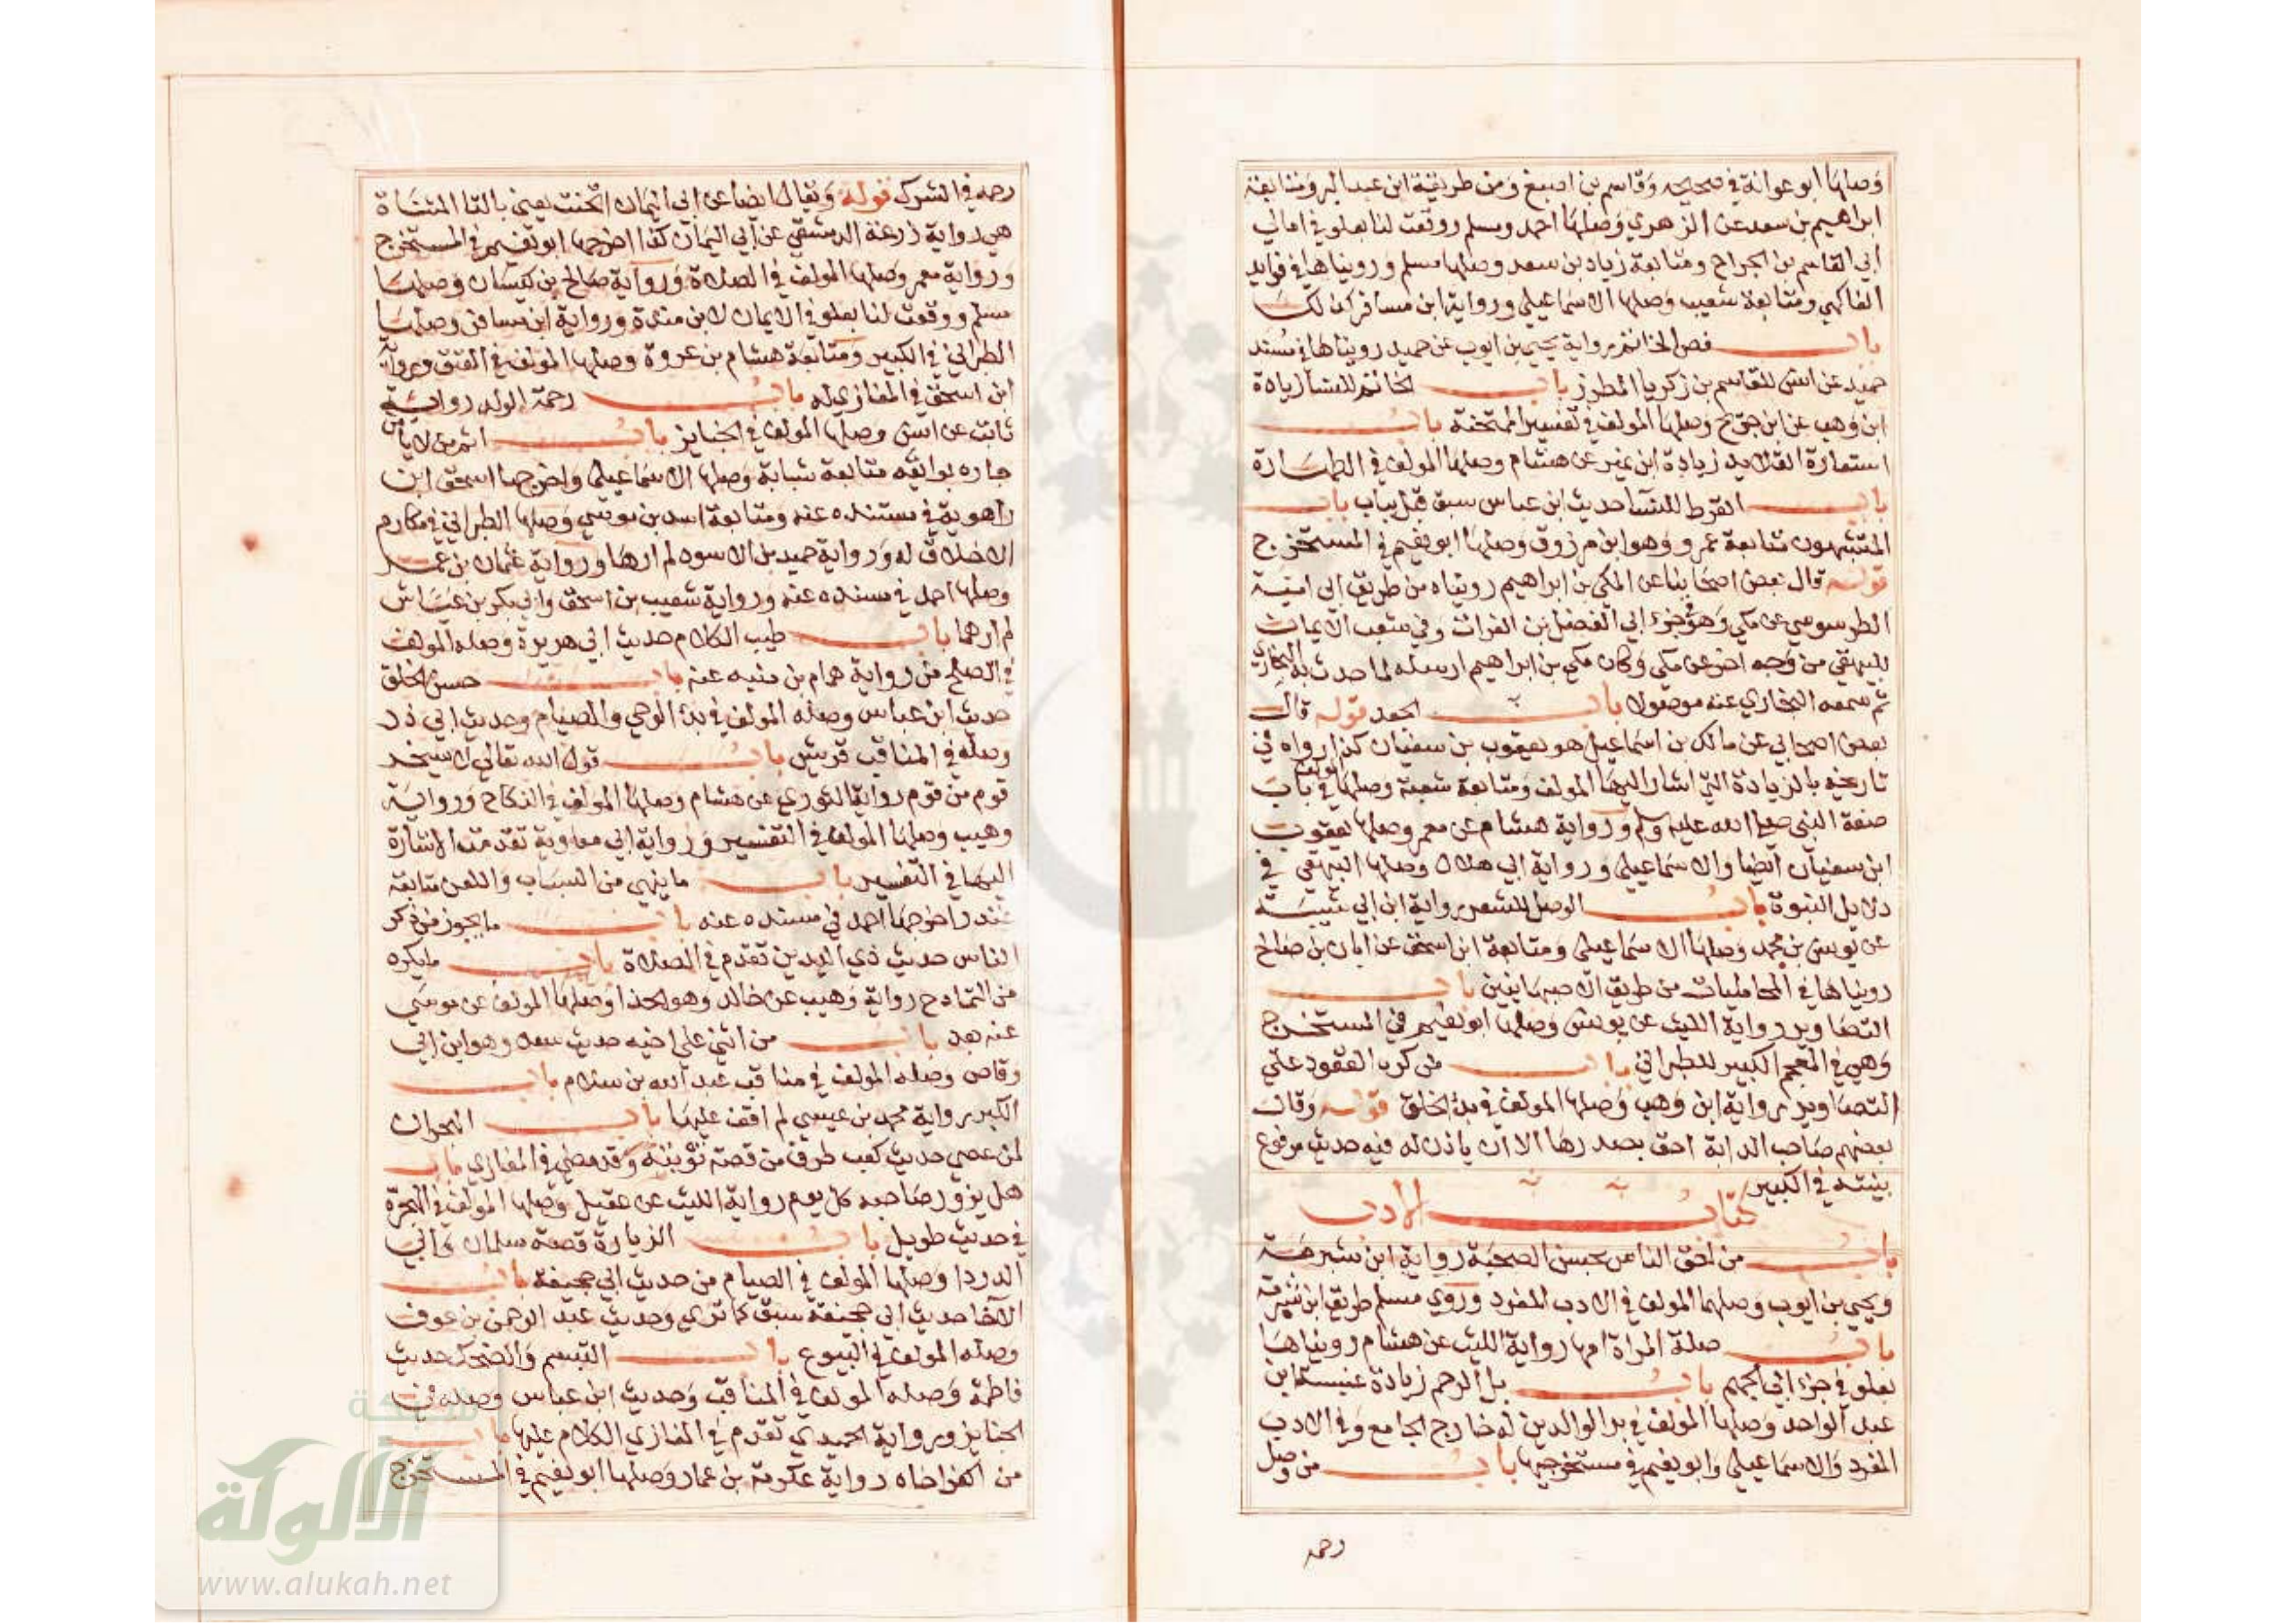 وصلها ابو عوانة في صحيحه وقاسم بن اصبغ ومن طريقة ابن عبد البر ومتابعة
ابراهيم بن سعد عن الزهري وصلها احمد ومسلم ووقعت لنا بعلو في امالي
ابي القاسم بن الجراح ومتابعة زياد بن سعد وصلها مسلم ورويناها في فوايد
الفاكهي ومتابعة شعيب وصلها الاسماعيلي ورواية ابن مسافر كذلك
باب فص الخاتم رواية يحيى بن ايوب عن حميد رويناها في مسند
حميد عن انس للقاسم بن زكريا المطرز باب الخاتم للنسا زيادة
ابن وهب عن ابن جريج وصلها المولف في تفسير الممتحنة باب
استعارة القلايد زيادة ابن نمير عن هشام وصلها المولف في الطهارة
باب القرط للنسا حديث ابن عباس سبق قبل بباب باب
المتشبهون متابعة عمرو وهو ابن مرزوق وصلها ابو نعيم في المستخرج
قوله قال بعض اصحابنا عن المكي بن ابراهيم رويناه من طريق ابي امية
الطرسوسي عن مكي وهو في جزء ابي الفضل بن الفرات وفي شعب الايمان
للبيهقي من وجه اخر عن مكي وكان مكي بن ابراهيم ارسله لما حدث به البخاري
ثم سمعه البخاري عنه موصولا باب الجعد قوله قال
بعض اصحابي عن مالك بن اسماعيل هو يعقوب بن سفيان كذا رواه في
تاريخه بالزيادة التي اشار اليها المولف ومتابعة شعبة وصلها المولف في باب
صفة النبي صلى الله عليه وسلم ورواية هشام عن معمر وصلها يعقوب
ابن سفيان ايضا والاسماعيلي ورواية ابي هلال وصلها البيهقي في
دلايل النبوة باب الوصل للشعر رواية ابن ابي شيبة
عن يونس بن محمد وصلها الاسماعيلي ومتابعة ابن اسحق عن ابان بن صالح
رويناها في المحامليات من طريق الاصبهانيين باب
التصاوير رواية الليث عن يونس وصلها ابو نعيم في المستخرج
وهي في المعجم الكبير للطبراني باب من كره القعود على
التصاوير رواية ابن وهب وصلها المولف في بدء الخلق قوله وقال
بعضهم صاحب الدابة احق بصدرها الا ان ياذن له فيه حديث مرفوع
بينته في الكبير
كتاب الادب
باب من احق الناس بحسن الصحبة رواية ابن شبرمة
ويحيى بن ايوب وصلهما المولف في الادب المفرد وروي مسلم طريق ابن شبرمة
باب صلة المراة امها رواية الليث عن هشام رويناها
بعلو في جزء ابي الجهم باب بل الرحم زيادة عنبسة ابن
عبد الواحد وصلها المولف في بر الوالدين له خارج الجامع وفي الادب
المفرد والاسماعيلي وابو نعيم في مستخرجيها باب من وصل
رحمه
رحمه في الشرك قوله ويقال ايضا عن ابي اليمان اتحنت يعني بالتا المثناة
هي رواية زرعة الدمشقي عن ابي اليمان كذا اخرجها ابو نعيم في المستخرج
ورواية معمر وصلها المولف في الصلاة ورواية صالح بن كيسان وصلها
مسلم ووقعت لنا بعلو في الايمان لابن مندة ورواية ابن مسافر وصلها
الطبراني في الكبير ومتابعة هشام بن عروة وصلها المولف في العتق ورواية
ابن اسحق في المغازي له باب رحمة الولد رواية
ثابت عن انس وصلها المولف في الجنايز باب اثم من لا يامن
جاره بوايقه متابعة شبابة وصلها الاسماعيلي واخرجها اسحق ابن
راهوية في مسنده عنه ومتابعة اسد بن موسي وصلها الطبراني في مكارم
الاخلاق له ورواية حميد بن الاسود لم ارها ورواية عثمان بن عمر
وصلها احمد في مسنده عنه ورواية شعيب بن اسحق وابي بكر بن عياش
لم ارهما باب طيب الكلام حديث ابي هريرة وصله المولف
في الصلح من رواية همام بن منبه عنه باب حسن الخلق
حديث ابن عباس وصله المولف في بدء الوحي والصيام وحديث ابي ذر
وصله في المناقب قريش باب قول الله تعالى لا يسخر
قوم من قوم رواية الثوري عن هشام وصلها المولف في النكاح ورواية
وهيب وصلها المولف في التفسير ورواية ابي معاوية تقدمت الاشارة
اليها في التفسير باب ما ينهى من السباب واللعن متابعة
غندر اخرجها احمد في مسنده عنه باب ما يجوز من ذكر
الناس حديث ذي اليدين تقدم في الصلاة باب ما يكره
من التمادح رواية وهيب عن خالد وهو الحذا وصلها المولف عن موسي
عنه بعد باب من اثني على اخيه حديث سعد وهو ابن ابي
وقاص وصله المولف في مناقب عبد الله بن سلام باب
الكبر رواية محمد بن عيسي لم اقف عليها باب الهجران
لمن عصي حديث كعب طرف من قصة توبته وقد مضي في المغازي باب
هل يزور صاحبه كل يوم رواية الليث عن عقيل وصلها المولف في الهجرة
في حديث طويل باب الزيارة قصة سلمان وابي
الدردا وصلها المولف في الصيام من حديث ابي جحيفة باب
الاخا حديث ابي جحيفة سبق كما تري وحديث عبد الرحمن بن عوف
وصله المولف في البيوع باب التبسم والضحك حديث
فاطمة وصله المولف في المناقب وحديث ابن عباس وصله في
الجنايز ورواية الحميدي تقدم في المغازي الكلام عليها باب
من اكفر اخاه رواية عكرمة بن عمار وصلها ابو نعيم في المستخرج
شبكة
الألولة
www.alukah.net